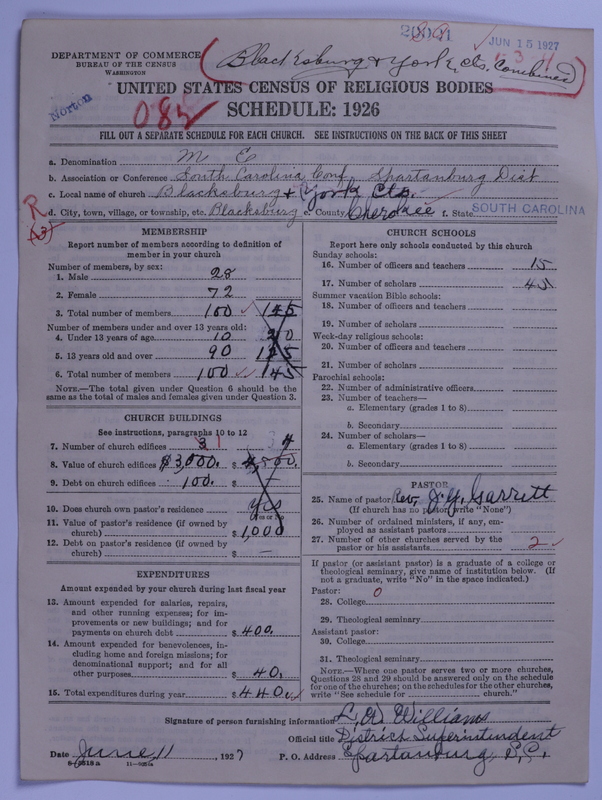 JUN 15 1927
DEPARTMENT OF COMMERCE
BUREAU OF THE CENSUS
WASHINGTON
Blacksburg & York, Cts. Combined
UNITED STATES CENSUS OF RELIGIOUS BODIES
Norton
SCHEDULE: 1926
FILL OUT A SEPARATE SCHEDULE FOR EACH CHURCH. SEE INSTRUCTIONS ON THE BACK OF THIS SHEET
a. Denomination M E
b. Association or Conference South Carolina Conf. Spartanburg Dist
c. Local name of church Blacksburg & York Cts.
R
d. City, town, village, or township, etc. Blacksburg e. County Cherokee f. State SOUTH CAROLINA
MEMBERSHIP
Report number of members according to definition of
member in your church
Number of members, by sex:
1. Male 28
2. Female 72
3. Total number of members 100 145
Number of members under and over 13 years old:
4. Under 13 years of age 10
5. 13 years old and over 90
6. Total number of members 100 145
NOTE.—The total given under Question 6 should be the
same as the total of males and females given under Question 3.
CHURCH BUILDINGS
See instructions, paragraphs 10 to 12
7. Number of church edifices 3 1 4
8. Value of church edifices $3,000. $4,500.
9. Debt on church edifices 100. $ —
10. Does church own pastor's residence Yes
(Yes or No)
11. Value of pastor's residence (if owned by
church) $1,000
12. Debt on pastor's residence (if owned by
church) $ —
EXPENDITURES
Amount expended by your church during last fiscal year
13. Amount expended for salaries, repairs,
and other running expenses; for im-
provements or new buildings; and for
payments on church debt $400.
14. Amount expended for benevolences, in-
cluding home and foreign missions; for
denominational support; and for all
other purposes $40.
15. Total expenditures during year $440.
CHURCH SCHOOLS
Report here only schools conducted by this church
Sunday schools:
16. Number of officers and teachers 15
17. Number of scholars 45
Summer vacation Bible schools:
18. Number of officers and teachers
19. Number of scholars
Week-day religious schools:
20. Number of officers and teachers
21. Number of scholars
Parochial schools:
22. Number of administrative officers
23. Number of teachers—
a. Elementary (grades 1 to 8)
b. Secondary
24. Number of scholars—
a. Elementary (grades 1 to 8)
b. Secondary
PASTOR
25. Name of pastor Rev. J. Y. Garrett
(If church has no pastor, write "None")
26. Number of ordained ministers, if any, em-
ployed as assistant pastors
27. Number of other churches served by the
pastor or his assistants 2
If pastor (or assistant pastor) is a graduate of a college or
theological seminary, give name of institution below. (If
not a graduate, write "No" in the space indicated.)
Pastor: 0
28. College
29. Theological seminary
Assistant pastor:
30. College
31. Theological seminary
NOTE.—Where one pastor serves two or more churches,
Questions 28 and 29 should be answered only on the schedule
for one of the churches; on the schedules for the other churches,
write "See schedule for church."
Signature of person furnishing information L. W. Williams
Official title District Superintendent
Date June 11 1927 P. O. Address Spartanburg, S.C.